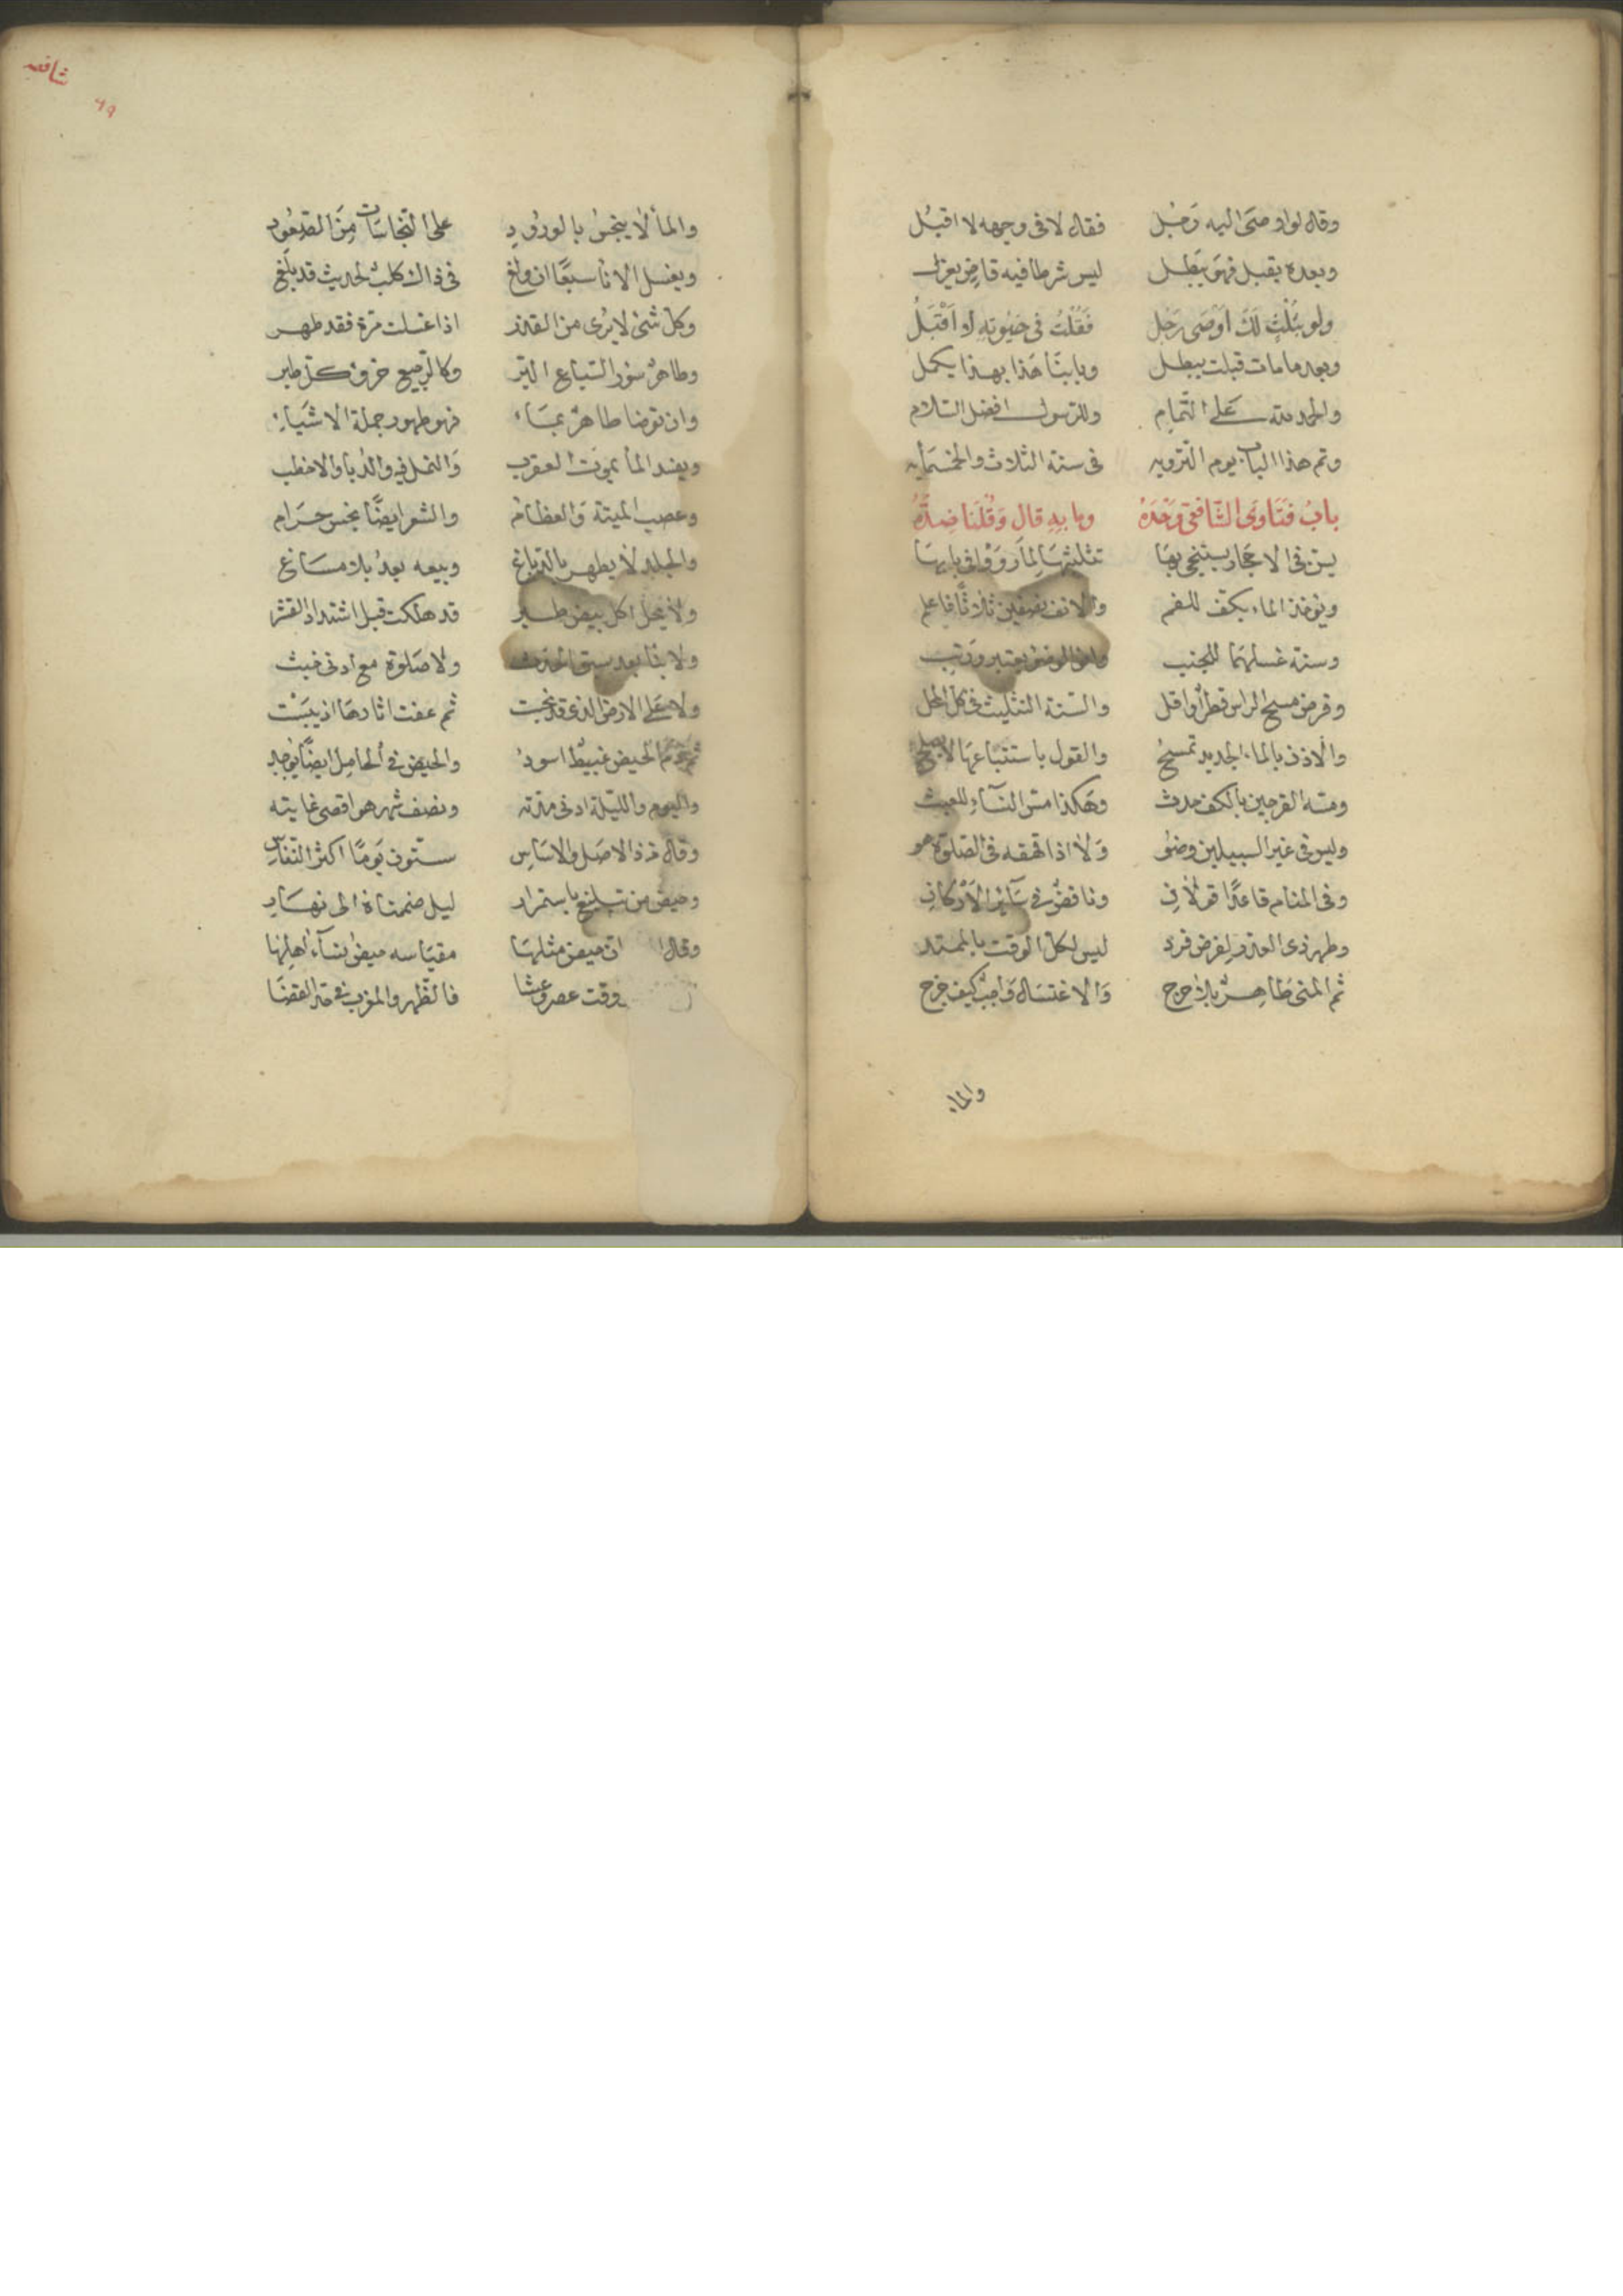 وقال لو اوصى اليه رجل فقال لا في وجهه لا اقبل
وبعده يقبل فهو يبطل ليس شرطا فيه قاض يعزل
ولو بلّغت لك اوصى رجل فقلت في حيوته لا اقبل
وبعد ما مات قبلت يبطل وبابنا هذا بهذا يكمل
والحمد لله على التمام وللرسول افضل السلام
وتم هذا الباب يوم الترويه في سنة الثلاث والخمسمايه
باب فتاوى الشافعي وحده وما به قال وقلنا ضده
يسن في الاحجار يستنجى بها تثليثها لما رووا في بابها
ويوخذ الماء بكف للفم والانف نصفين ثلاثا فاعلم
وسنة غسلهما للجنب وفي الوضوء يعتبر ورتب
وفرض مسح الراس قطرا واقل والسنة التثليث في كل المحل
والاذن بالماء الجديد تمسح والقول باستتباعها لا يصلح
ومسه الفرجين بالكف حدث وهكذا مس النساء للعبث
وليس في غير السبيلين وضو ولا اذا قهقه في الصلوة هو
وفي المنام قاعدا قولان وناقض في سائر الاركان
وطهر ذي العذر لفرض فرد ليس لكل الوقت بالممتد
ثم المني طاهر بلا حرج والاغتسال واجب كيف خرج
والماء
شافعيه
٦٩
والمأ لا ينجس بالورود على النجاسات من الصعود
ويغسل الانأ سبعا ان ولغ في ذاك كلب لحديث قد بلغ
وكل شئ لا يرى من القذر اذا غسلت مرة فقد طهر
وطاهر سور السباع البر وكالرجيع خرؤ كل طير
وان توضا طاهر بماء فهو طهور جملة الاشياء
ويفسد المأ بموت العقرب والنحل فيه والذباوالاخطب
وعصب الميتة والعظام والشعر ايضا نجس حرام
والجلد لا يطهر بالدباغ وبيعه بعد بلا مساغ
ولا يحل اكل بيض طير قد هلكت قبل اشتداد القشر
ولا بنا بعد سبق الحدث ولا صلوة مع ادنى خبث
ولا على الارض الذي قد نجست ثم عفت اثارها اذ يبست
ثم دم الحيض غبيط اسود والحيض في الحامل ايضا يوجد
واليوم والليلة ادنى مدته ونصف شهر هو اقصى غايته
وقال ذا الاصل والاساس ستون يوما اكثر النفاس
وحيض من تبلغ باستمرار ليل ضممناه الى نهار
وقال ان حيض مثلها مقياسه حيض نساء اهلها
وقت عصر وعشا فالظهر والمغرب في حد القضا